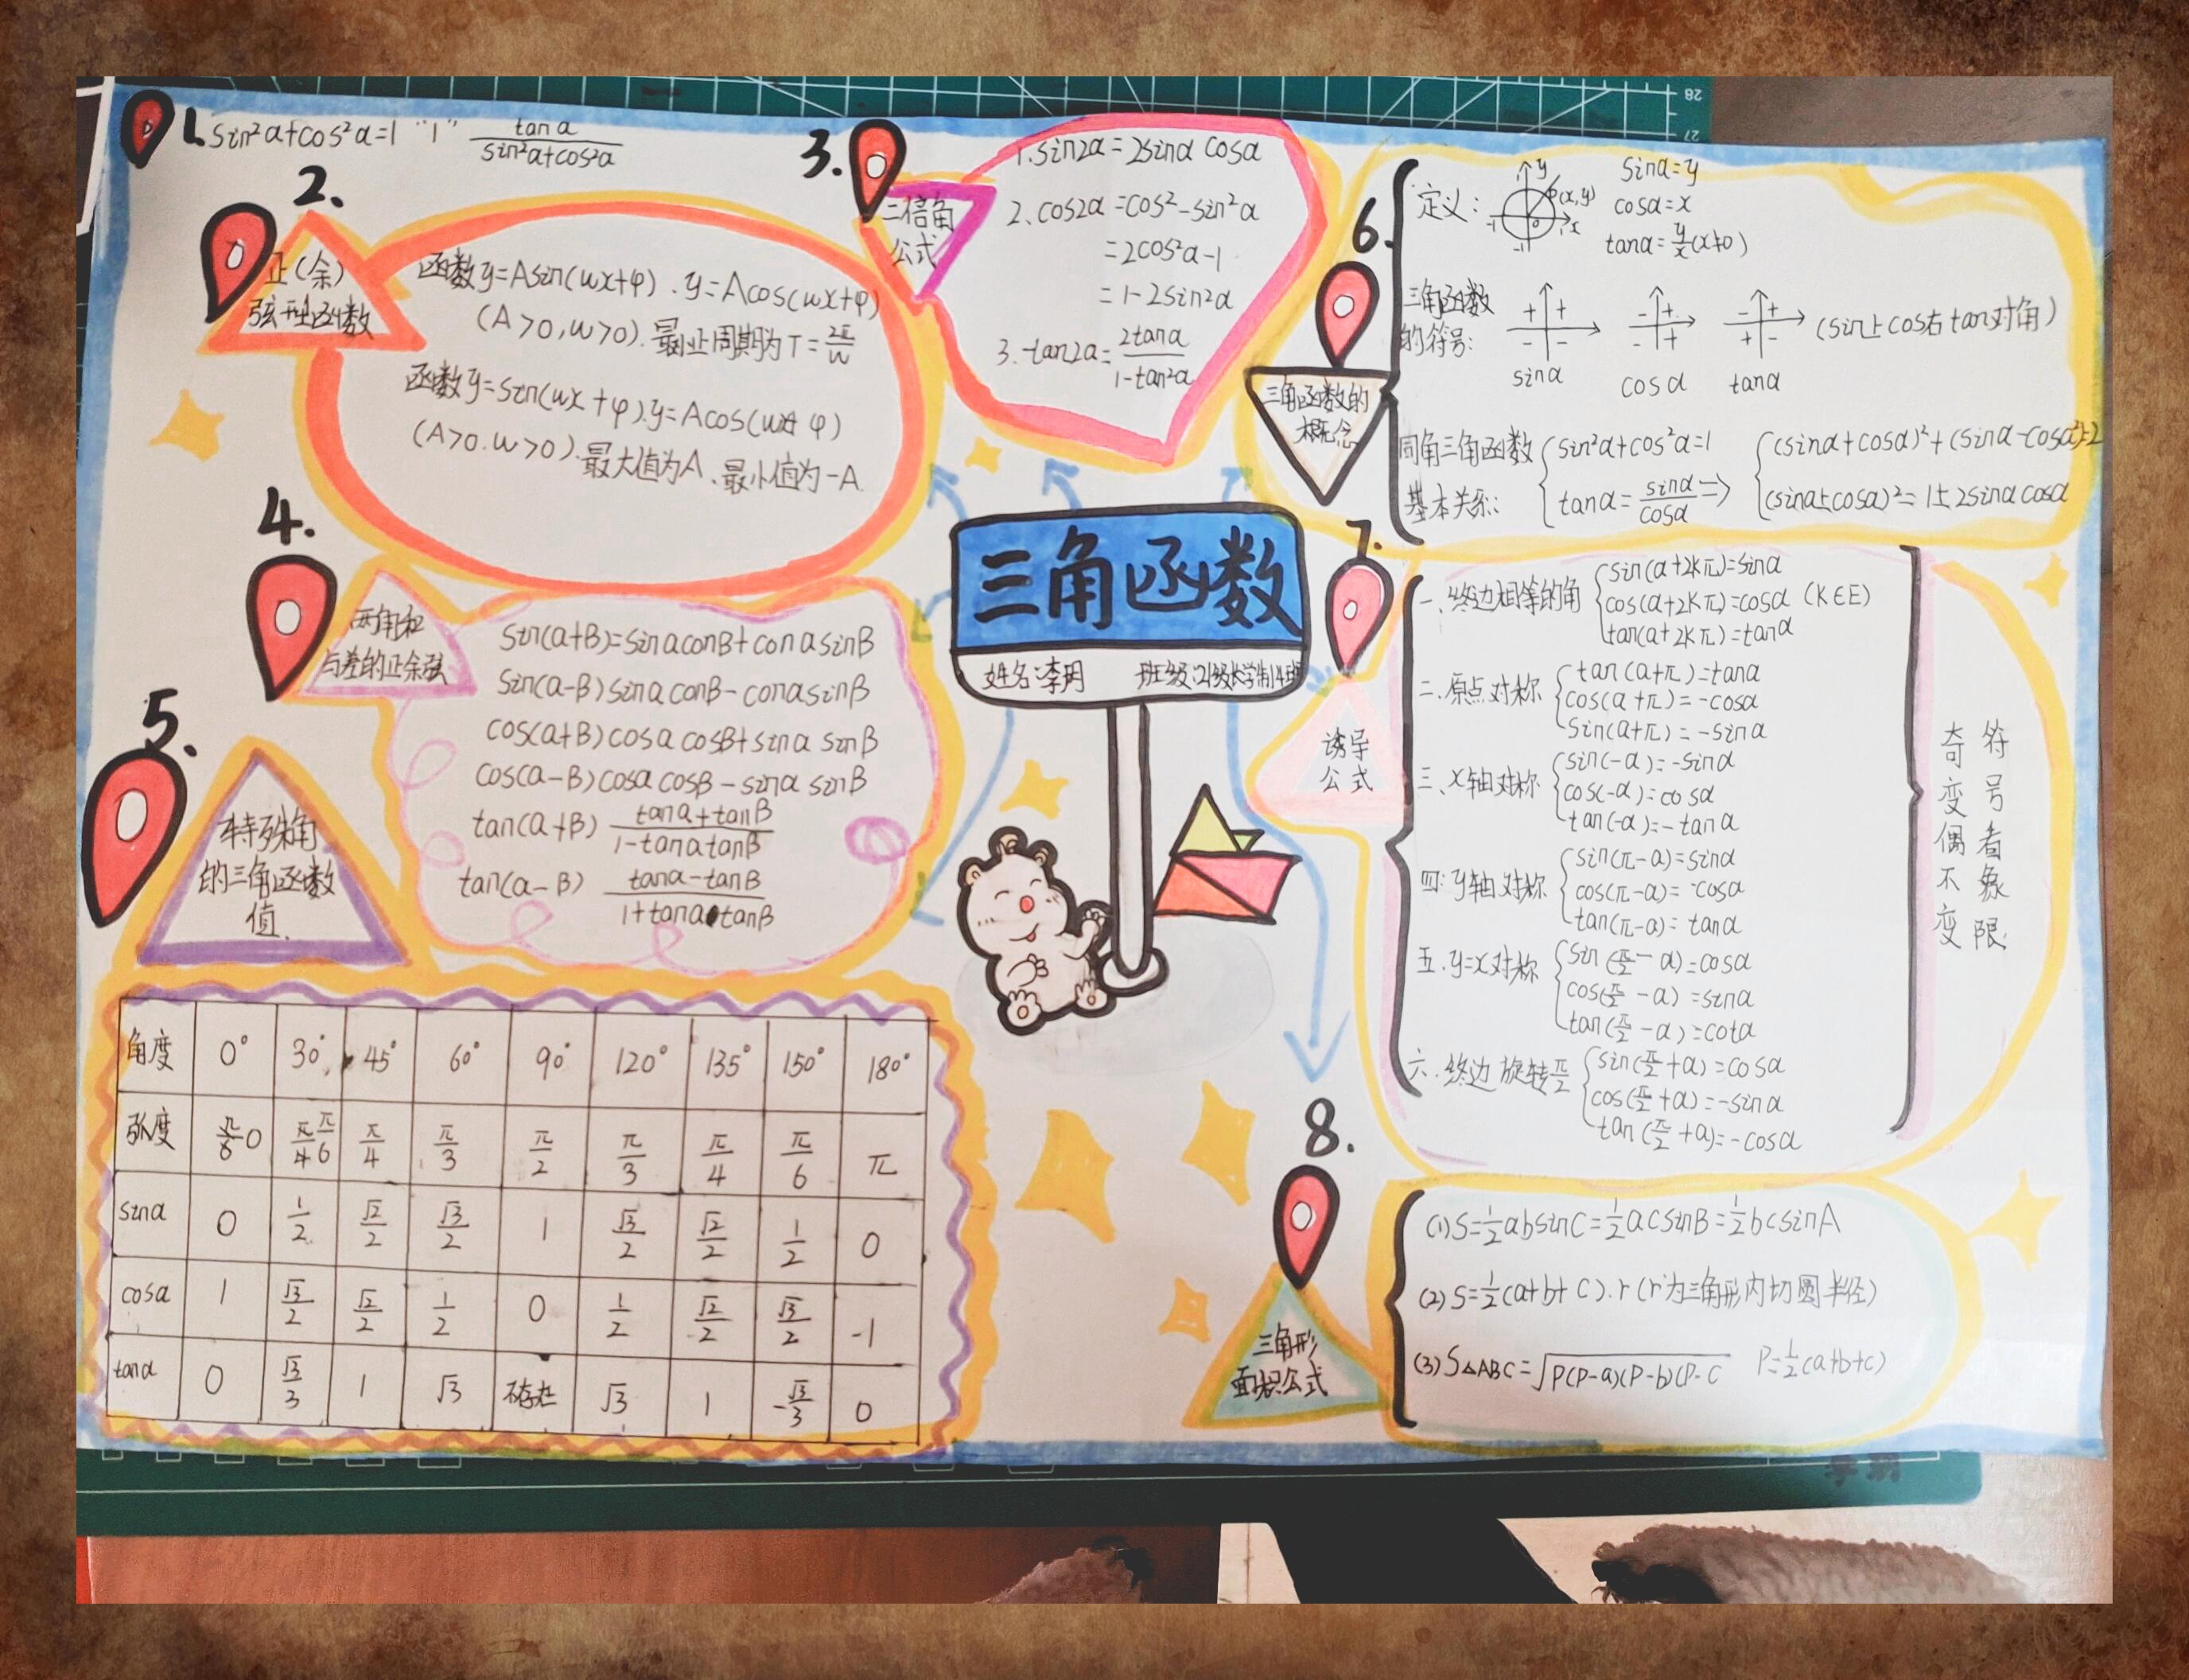 1. sin²α+cos²α=1 "1" tanα/(sin²α+cos²α)
2.
正(余)
弦型函数
函数y=Asin(wx+φ).y=Acos(wx+φ)
(A>0,w>0).最小正周期为T=2π/w
函数y=sin(wx+φ).y=Acos(wx+φ)
(A>0.w>0).最大值为A.最小值为-A
3.
二倍角
公式
1.sin2α=2sinα cosα
2.cos2α=cos²-sin²α
=2cos²α-1
=1-2sin2α
3.tan2α=2tanα/(1-tan²α)
4.
两角和
与差的正余弦
sin(α+B)=sinαconB+conαsinB
sin(α-B)sinαconB-conαsinB
cos(α+B)cosαcosB+sinαsinB
cos(α-B)cosαcosB-sinαsinB
tan(α+B) (tanα+tanB)/(1-tanαtanB)
tan(α-B) (tanα-tanB)/(1+tanα•tanB)
5.
特殊角
的三角函数
值
角度 0° 30° 45° 60° 90° 120° 135° 150° 180°
弧度 0 π/4 π/6 π/4 π/3 π/2 π/3 π/4 π/6 π
sinα 0 1/2 √2/2 √3/2 1 √3/2 √2/2 1/2 0
cosα 1 √3/2 √2/2 1/2 0 1/2 √2/2 √3/2 -1
tanα 0 √3/3 1 √3 不存在 √3 1 -√3/3 0
三角函数
姓名:李玥 班级:21级大学制14班
6.
三角函数的
概念
定义:
y
P(x,y)
-1 0 1 x
-1
sinα=y
cosα=x
tanα=y/x(x≠0)
三角函数
的符号:
+ + - + - +
- - - + + -
sinα cosα tanα
(sin上cos右tan对角)
同角三角函数
基本关系:
sin²α+cos²α=1
tanα=sinα/cosα ⇒
(sinα+cosα)²+(sinα-cosα)²=2
(sinα±cosα)²=1±2sinαcosα
7.
诱导
公式
一、终边相等的角
sin(α+2kπ)=sinα
cos(α+2kπ)=cosα (K∈E)
tan(α+2kπ)=tanα
二.原点对称
tan(α+π)=tanα
cos(α+π)=-cosα
sin(α+π)=-sinα
三、x轴对称
sin(-α)=-sinα
cos(-α)=cosα
tan(-α)=-tanα
四:y轴对称
sin(π-α)=sinα
cos(π-α)=-cosα
tan(π-α)=tanα
五.y=x对称
sin(π/2-α)=cosα
cos(π/2-α)=sinα
tan(π/2-α)=cotα
六.终边旋转π/2
sin(π/2+α)=cosα
cos(π/2+α)=-sinα
tan(π/2+α)=-cosα
奇变偶不变
符号看象限
8.
三角形
面积公式
(1)S=1/2absinC=1/2acsinB=1/2bcsinA
(2)S=1/2(a+b+c).r(r为三角形内切圆半径)
(3)S△ABC=√P(P-a)(P-b)(P-C P=1/2(a+b+c)
28
27